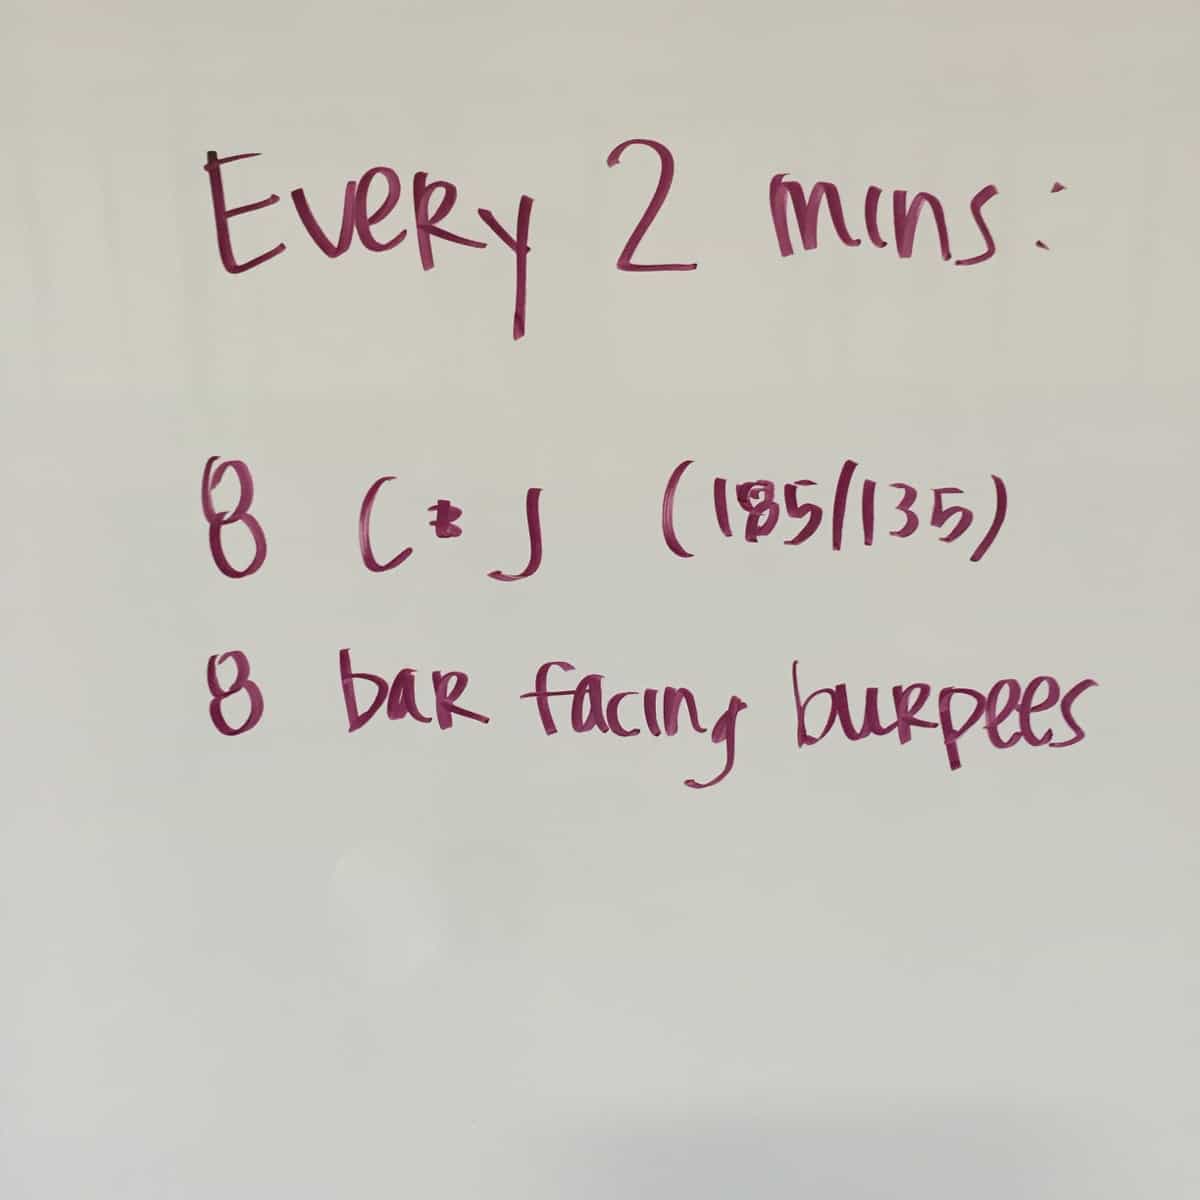 Every 2 mins:
8 C & J (185/135)
8 bar facing burpees